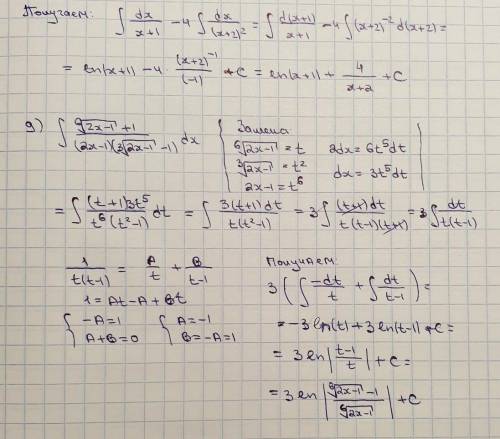 Получаем: ∫ dx/(x+1) − 4 ∫ dx/(x+2)² = ∫ d(x+1)/(x+1) − 4 ∫ (x+2)⁻² d(x+2) =
= ln|x+1| − 4 · (x+2)⁻¹/(−1) + C = ln|x+1| + 4/(x+2) + C
g) ∫ (⁶√(2x−1) + 1)/((2x−1)(³√(2x−1) − 1)) dx
Замена
⁶√(2x−1) = t 2dx = 6t⁵dt
³√(2x−1) = t² dx = 3t⁵dt
2x−1 = t⁶
= ∫ (t+1)3t⁵/(t⁶(t²−1)) dt = ∫ 3(t+1)dt/(t(t²−1)) = 3 ∫ (t+1)dt/(t(t−1)(t+1)) = 3 ∫ dt/(t(t−1))
1/(t(t−1)) = A/t + B/(t−1)
1 = At − A + Bt
{ −A = 1 { A = −1
{ A+B = 0 { B = −A = 1
Получаем:
3 ( ∫ −dt/t + ∫ dt/(t−1) ) =
= −3 ln|t| + 3 ln|t−1| + C =
= 3 ln |(t−1)/t| + C =
= 3 ln |(⁶√(2x−1) − 1)/⁶√(2x−1)| + C